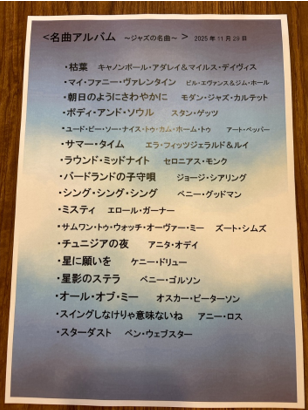 <名曲アルバム ～ジャズの名曲～ > 2025年11月29日
・枯葉 キャノンボール・アダレイ&マイルス・デイヴィス
・マイ・ファニー・ヴァレンタイン ビル・エヴァンス&ジム・ホール
・朝日のようにさわやかに モダン・ジャズ・カルテット
・ボディ・アンド・ソウル スタン・ゲッツ
・ユード・ビー・ソー・ナイス・トゥ・カム・ホーム・トゥ アート・ペッパー
・サマー・タイム エラ・フィッツジェラルド&ルイ
・ラウンド・ミッドナイト セロニアス・モンク
・バードランドの子守唄 ジョージ・シアリング
・シング・シング・シング ベニー・グッドマン
・ミスティ エロール・ガーナー
・サムワン・トゥ・ウォッチ・オーヴァー・ミー ズート・シムズ
・チュニジアの夜 アニタ・オデイ
・星に願いを ケニー・ドリュー
・星影のステラ ベニー・ゴルソン
・オール・オブ・ミー オスカー・ピーターソン
・スイングしなけりゃ意味ないね アニー・ロス
・スターダスト ベン・ウェブスター